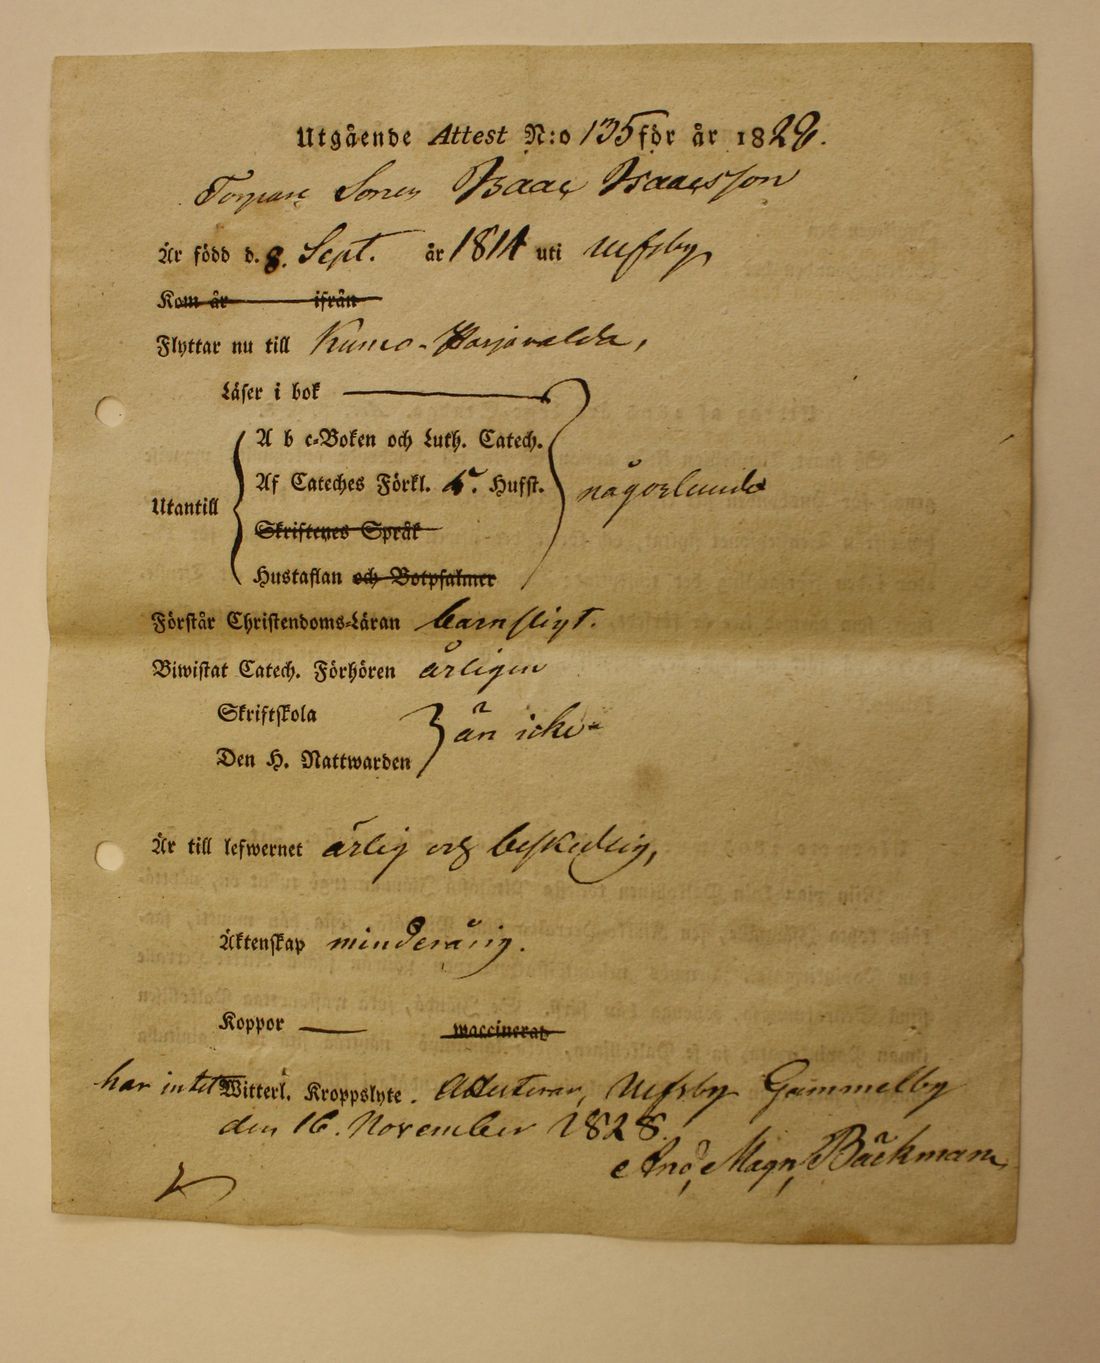 Utgående Attest N:o 135 för år 1828.
Torpare Sonen Isaac Isaacsson
Är född d. 8. Sept. år 1814 uti Ulfsby
Kom år ifrån
Flyttar nu till Kumo-Harjavalda,
Läser i bok
A b c-Boken och Luth. Catech.
Af Cateches Förkl. 5. Hufst. någorlunda
Utantill
Skriftenes Språk
Hustaflan och Botpsalmer
Förstår Christendoms-Läran barnsligt.
Biwistat Catech. Förhören årligen
Skriftskola
än icke
Den H. Nattwarden
Är till lefwernet ärlig och beskedlig,
Äktenskap minderårig.
Koppor waccinerad
har intet Witterl. Kroppslyte. Attesterar, Ulfsby Gammelby
den 16. November 1828.
And. Magn. Bäckman